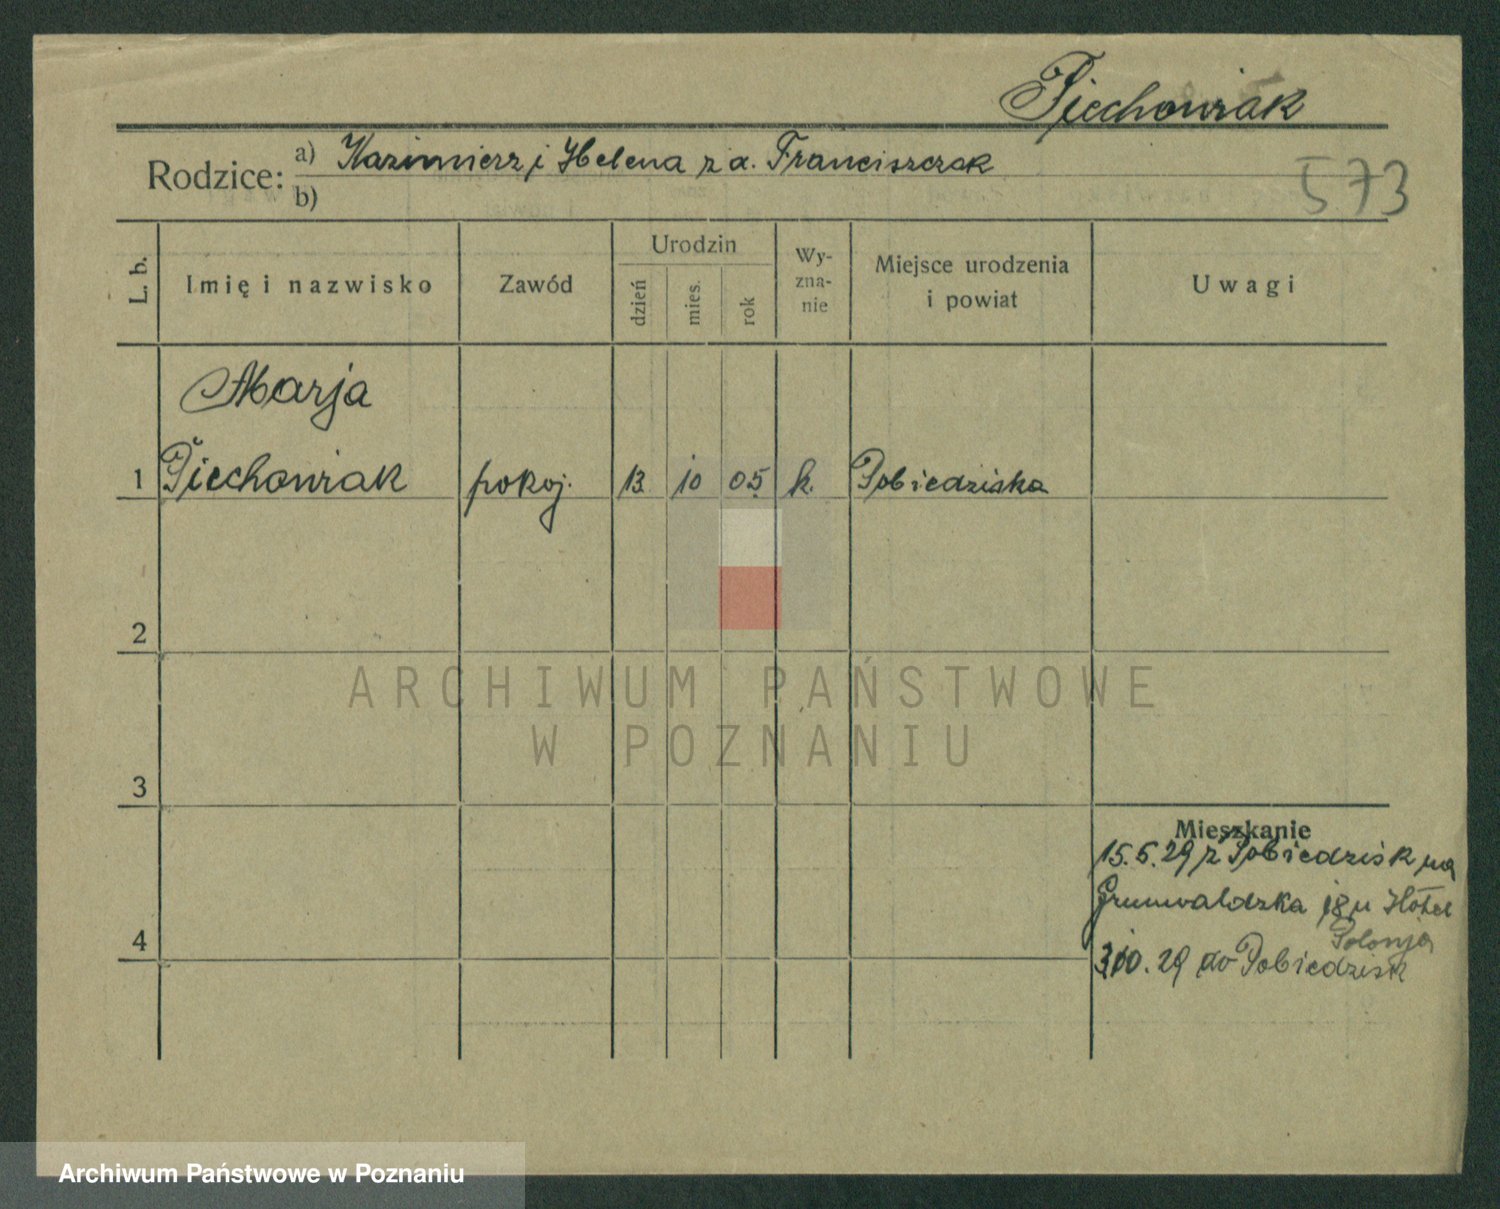 Piechowiak
Rodzice: a) Kazimierz i Helena z d. Franciszczak
b)
573
L. b.
Imię i nazwisko
Zawód
Urodzin
dzień
mies.
rok
Wy-
zna-
nie
Miejsce urodzenia
i powiat
Uwagi
Marja
1 Piechowiak pokoj. 13 10 05 k. Pobiedziska
2
3
4
Mieszkanie
15.5.29 z Pobiedzisk na
Grunwaldzka 18 u Hotel
Polonja
10.29 do Pobiedzisk
ARCHIWUM PAŃSTWOWE
W POZNANIU
Archiwum Państwowe w Poznaniu